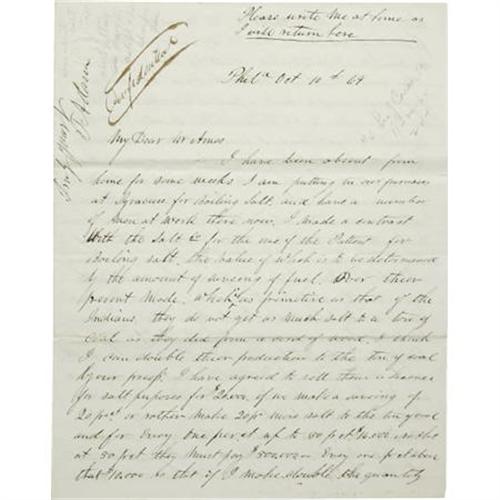 Please write me at home as
I will return here
Confidential
Phila Oct 10th 64
My Dear Mr Amos
I have been absent from
home for some weeks I am putting in our furnaces
at Syracuse for boiling Salt, and have a number
of men at work there now. I made a contract
with the Salt Co for the use of the Patent for
boiling salt. the value of which is to be determined
by the amount of saving of fuel. Over their
present Mode, which is as primitive as that of the
Indians, they do not get as much salt to a ton of
coal as they did from a cord of wood. I think
I can double their production to the ton of coal
I have agreed to sell them a license
for salt purposes for if we make a saving of
20 pct or rather make 20 pc more salt to the ton of coal
and for every one per ct up to 50 pct 10,000 so that
at 50 pct they must pay 300,000 Every one pct above
that 10,000 so that if I make double the quantity